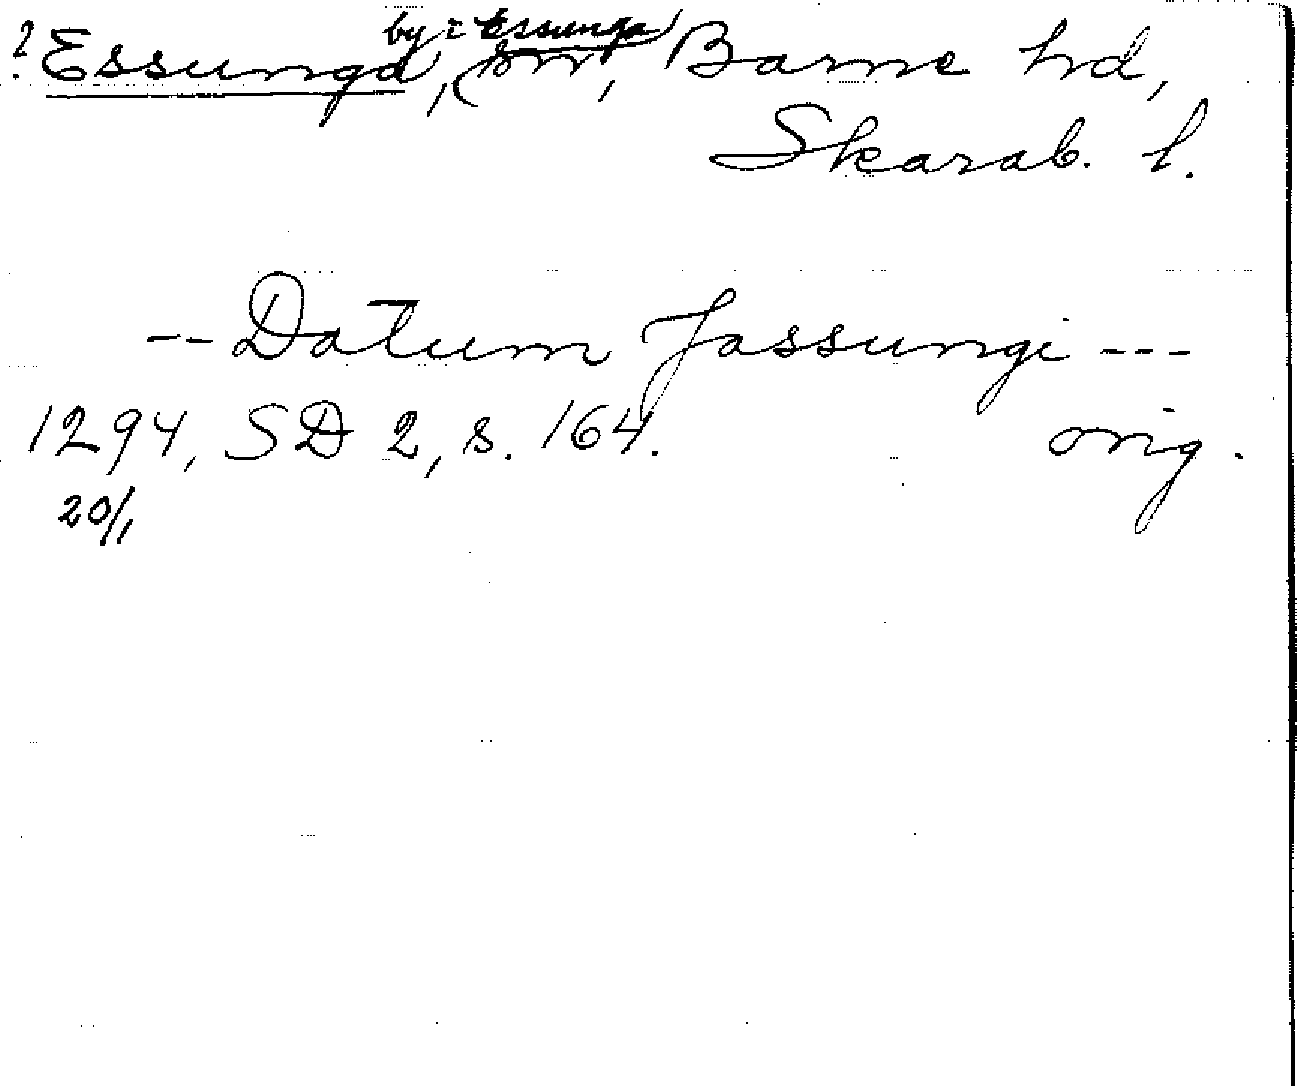 by i Essunga
? Essunga, (sn), Barne hd,
Skarab. l.
-- Datum Jassungi ---
1294, SD 2, s. 164. orig.
20/1